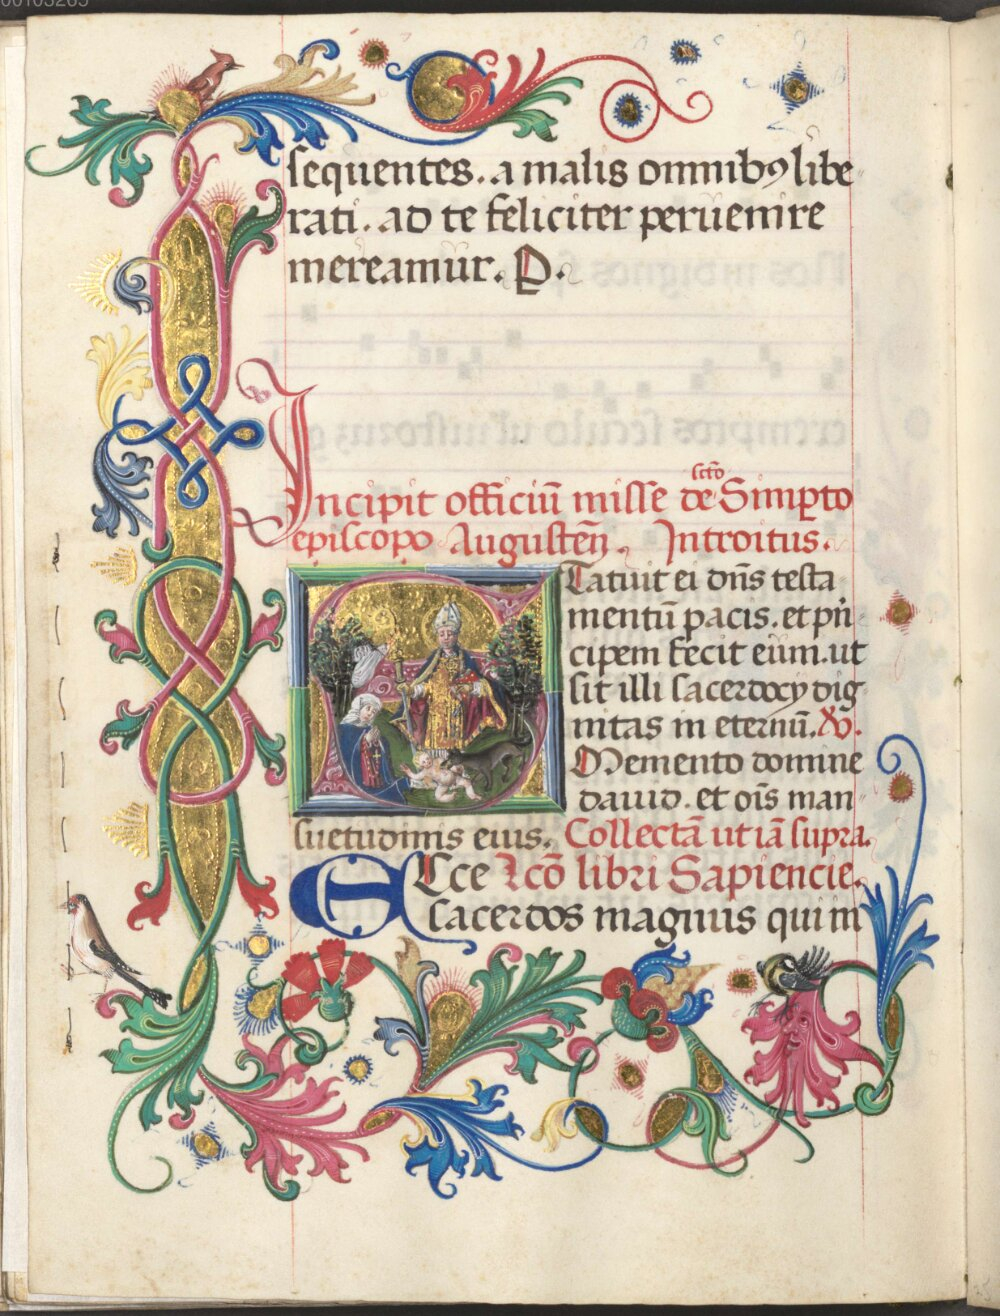 00103265
sequentes. a malis omnibꝯ libe
rati. ad te feliciter peruenire
mereamur. P.
scto
Incipit officiū misse de Simpto
episcopo Augusteñ. Introitus.
Statuit ei dn̄s testa
mentū pacis. et prī
cipem fecit eum. ut
sit illi sacerdocy dig
nitas in eternū. Ps.
Memento domine
dauid. et oīs man
suetudinis eius. Collectā ut iā supra.
Ecce Lcō libri Sapiencie.
sacerdos magnus qui m